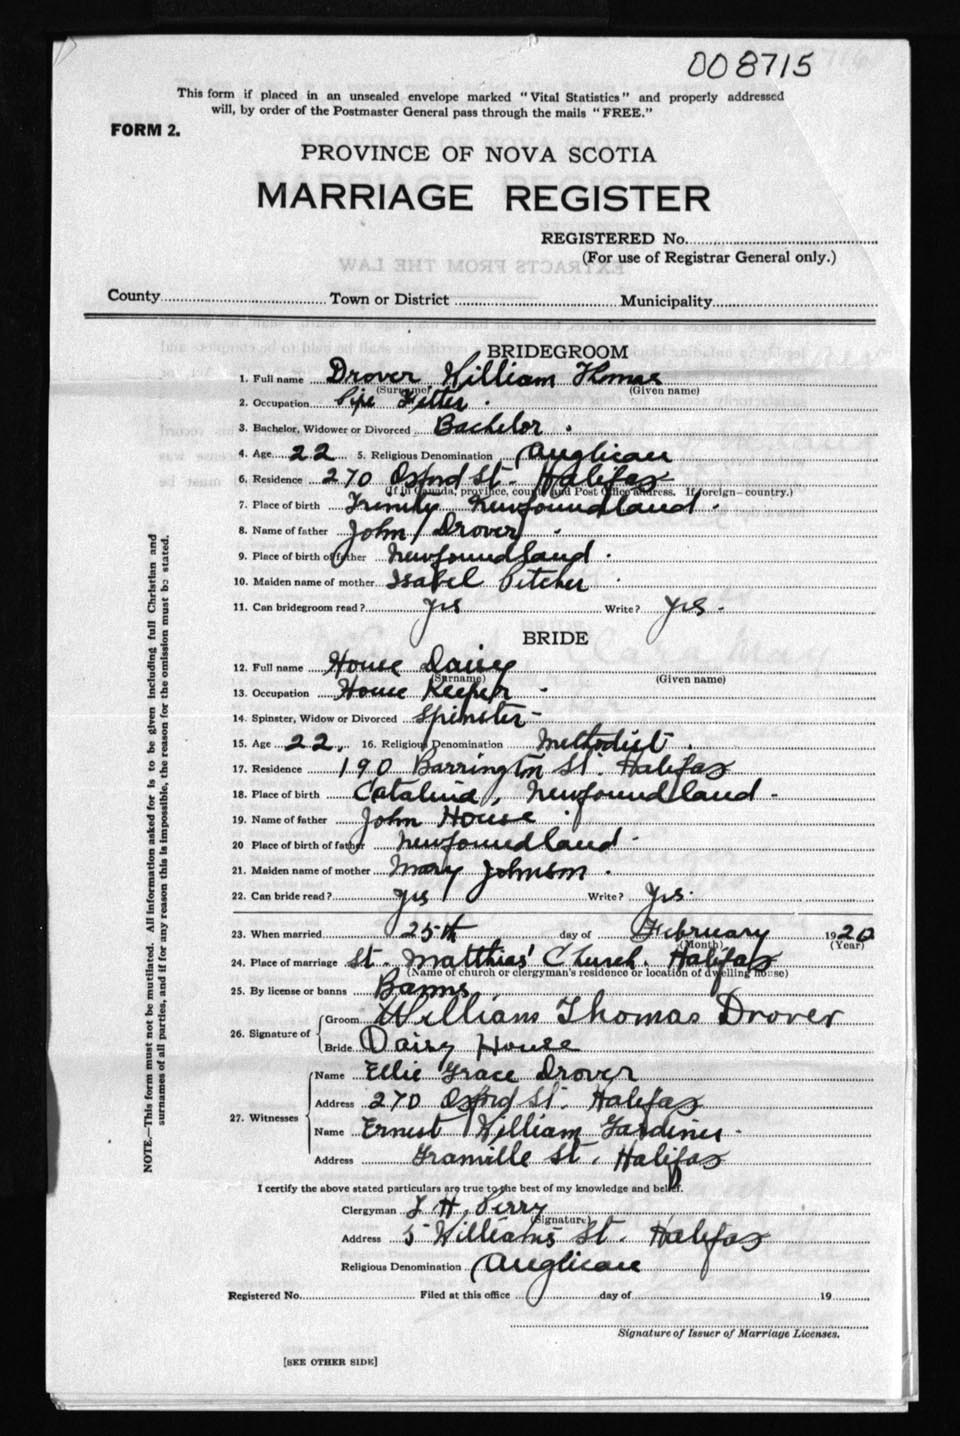 008715
This form if placed in an unsealed envelope marked "Vital Statistics" and properly addressed
will, by order of the Postmaster General pass through the mails "FREE."
FORM 2.
PROVINCE OF NOVA SCOTIA
MARRIAGE REGISTER
REGISTERED No.
(For use of Registrar General only.)
County Town or District Municipality
BRIDEGROOM
1. Full name Drover William Thomas
(Surname) (Given name)
2. Occupation Pipe Fitter.
3. Bachelor, Widower or Divorced Bachelor.
4. Age 22 5. Religious Denomination Anglican
6. Residence 270 Oxford St. Halifax
(If in Canada, province, county and Post Office address. If foreign—country.)
7. Place of birth Trinity Newfoundland.
8. Name of father John Drover
9. Place of birth of father Newfoundland.
10. Maiden name of mother Isabel Pitcher
11. Can bridegroom read? Yes Write? Yes.
BRIDE
12. Full name House Daisy
(Surname) (Given name)
13. Occupation House Keeper
14. Spinster, Widow or Divorced Spinster-
15. Age 22. 16. Religious Denomination Methodist.
17. Residence 190 Barrington St. Halifax
18. Place of birth Catalina, Newfoundland-
19. Name of father John House
20 Place of birth of father Newfoundland
21. Maiden name of mother Mary Johnson.
22. Can bride read? Yes Write? Yes.
23. When married 25th day of February 1920
(Month) (Year)
24. Place of marriage St. Matthias' Church. Halifax
(Name of church or clergyman's residence or location of dwelling house)
25. By license or banns Banns.
26. Signature of Groom William Thomas Drover
Bride Daisy House
27. Witnesses Name Ellie Grace Drover
Address 270 Oxford St. Halifax
Name Ernest William Gardiner-
Address Granville St. Halifax
I certify the above stated particulars are true to the best of my knowledge and belief.
Clergyman T. H. Perry
(Signature)
Address 5 Williams St. Halifax
Religious Denomination Anglican
Registered No. Filed at this office day of 19
Signature of Issuer of Marriage Licenses.
[SEE OTHER SIDE]
NOTE.—This form must not be mutilated. All information asked for is to be given including full Christian and
surnames of all parties, and if for any reason this is impossible, the reason for the omission must be stated.